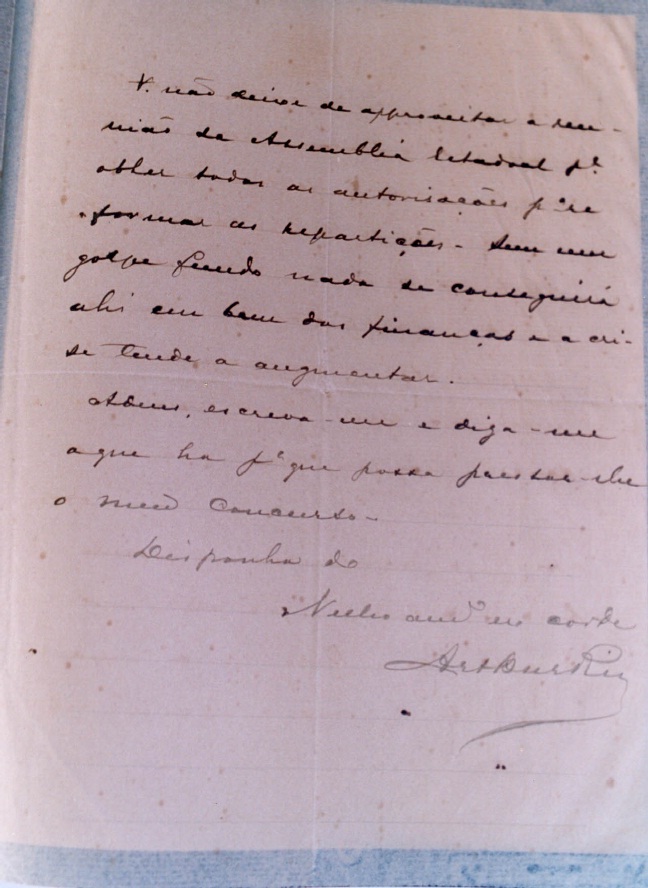 V. não deixe de approveitar a reu-
nião da Assembléa Estadoal pª
obter todas as autorisações pª re
formar as repartições - Sem um
golpe fundo nada se conseguirá
ahi em bem das finanças e a cri-
se tende a augmentar.
Adeus, escreva-me e diga-me
o que ha pª que possa prestar-lhe
o meu concurso -
Disponha do
Velho amº
Arthur Rios